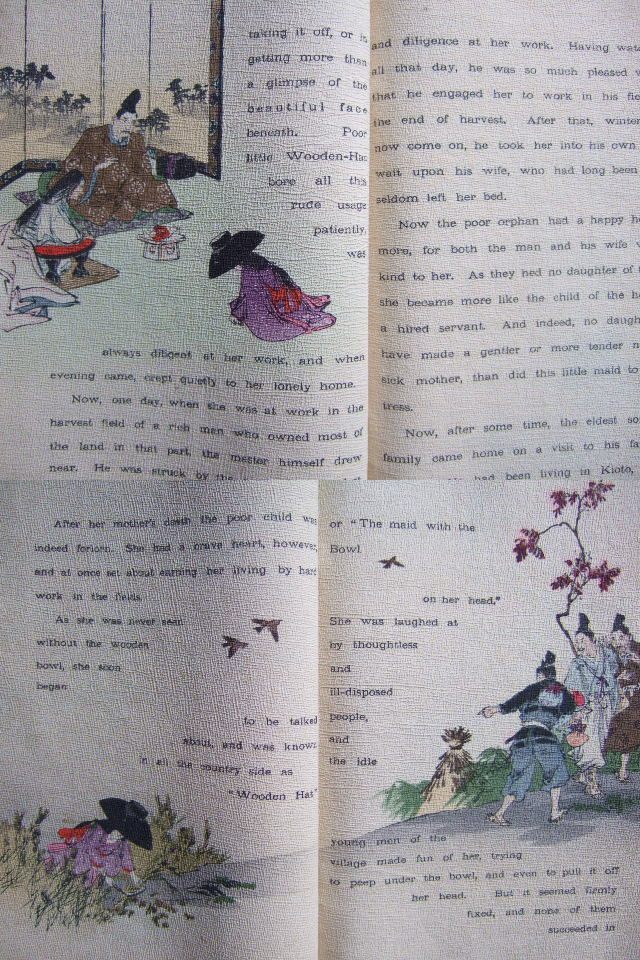 taking it off, or in
getting more than
a glimpse of the
beautiful face
beneath. Poor
little Wooden-Hat
bore all this
rude usage
patiently,
was
always diligent at her work, and when
evening came, crept quietly to her lonely home.
Now, one day, when she was at work in the
harvest field of a rich man who owned most of
the land in that part, the master himself drew
near. He was struck by the
and diligence at her work. Having
all that day, he was so much pleased
that he engaged her to work in his
the end of harvest. After that, winter
now come on, he took her into his own
wait upon his wife, who had long been
seldom left her bed.
Now the poor orphan had a happy
more, for both the man and his wife
kind to her. As they had no daughter of
she became more like the child of the
a hired servant. And indeed, no
have made a gentler or more tender
sick mother, than did this little maid to
tress.
Now, after some time, the eldest
family came home on a visit to his
had been living in Kioto,
After her mother's death the poor child was
indeed forlorn. She had a brave heart, however,
and at once set about earning her living by hard
work in the fields.
As she was never seen
without the wooden
bowl, she soon
began
to be talked
about, and was known
in all the country side as
"Wooden Hat"
or "The maid with the
Bowl
on her head."
She was laughed at
by thoughtless
and
ill-disposed
people,
and
the idle
young men of the
village made fun of her, trying
to peep under the bowl, and even to pull it off
her head. But it seemed firmly
fixed, and none of them
succeeded in